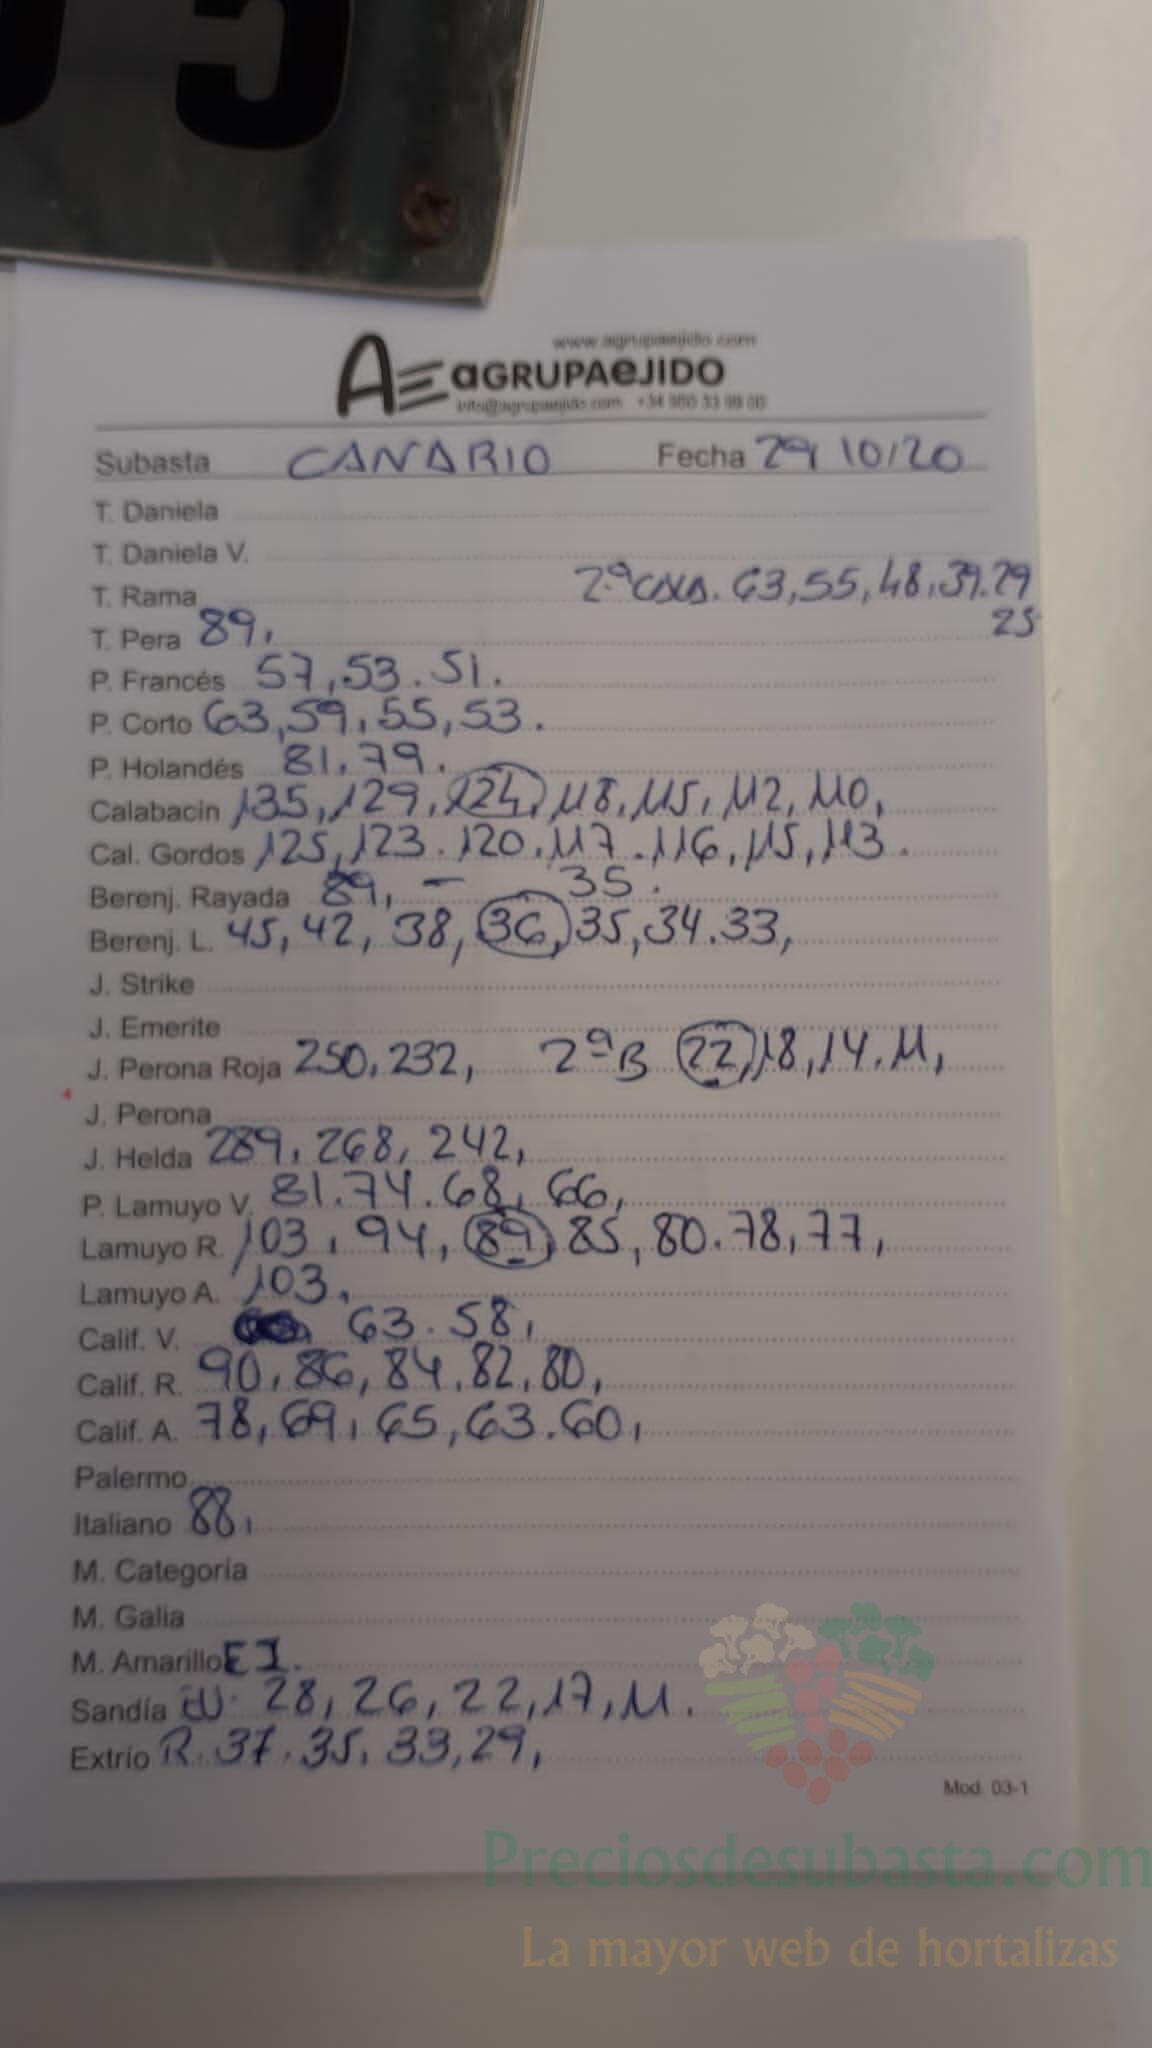 5
www.agrupaejido.com
AE aGRUPAeJIDO
info@agrupaejido.com +34 950 33 99 00
Subasta CANARIO Fecha 29/10/20
T. Daniela
T. Daniela V.
T. Rama 2ª CALA. 63, 55, 48, 39. 29
25
T. Pera 89,
P. Francés 57, 53. 51.
P. Corto 63, 59, 55, 53.
P. Holandés 81. 79.
Calabacín 135, 129, 124, 118, 115, 112, 110,
Cal. Gordos 125, 123. 120. 117. 116, 115, 113.
Berenj. Rayada 89, - 35.
Berenj. L. 45, 42, 38, 36, 35, 34. 33,
J. Strike
J. Emerite
J. Perona Roja 250, 232, 2ª B 22, 18, 14. 11,
J. Perona
J. Helda 289, 268, 242,
P. Lamuyo V. 81. 74. 68, 66,
Lamuyo R. 103, 94, 89, 85, 80. 78, 77,
Lamuyo A. 103,
Calif. V. 63. 58,
Calif. R. 90, 86, 84. 82, 80,
Calif. A. 78, 69, 65, 63. 60,
Palermo
Italiano 88,
M. Categoría
M. Galia
M. Amarillo EI.
Sandía 28, 26, 22, 17, 11.
Extrío R. 37. 35. 33, 29,
Mod. 03-1
Preciosdesubasta.com
La mayor web de hortalizas